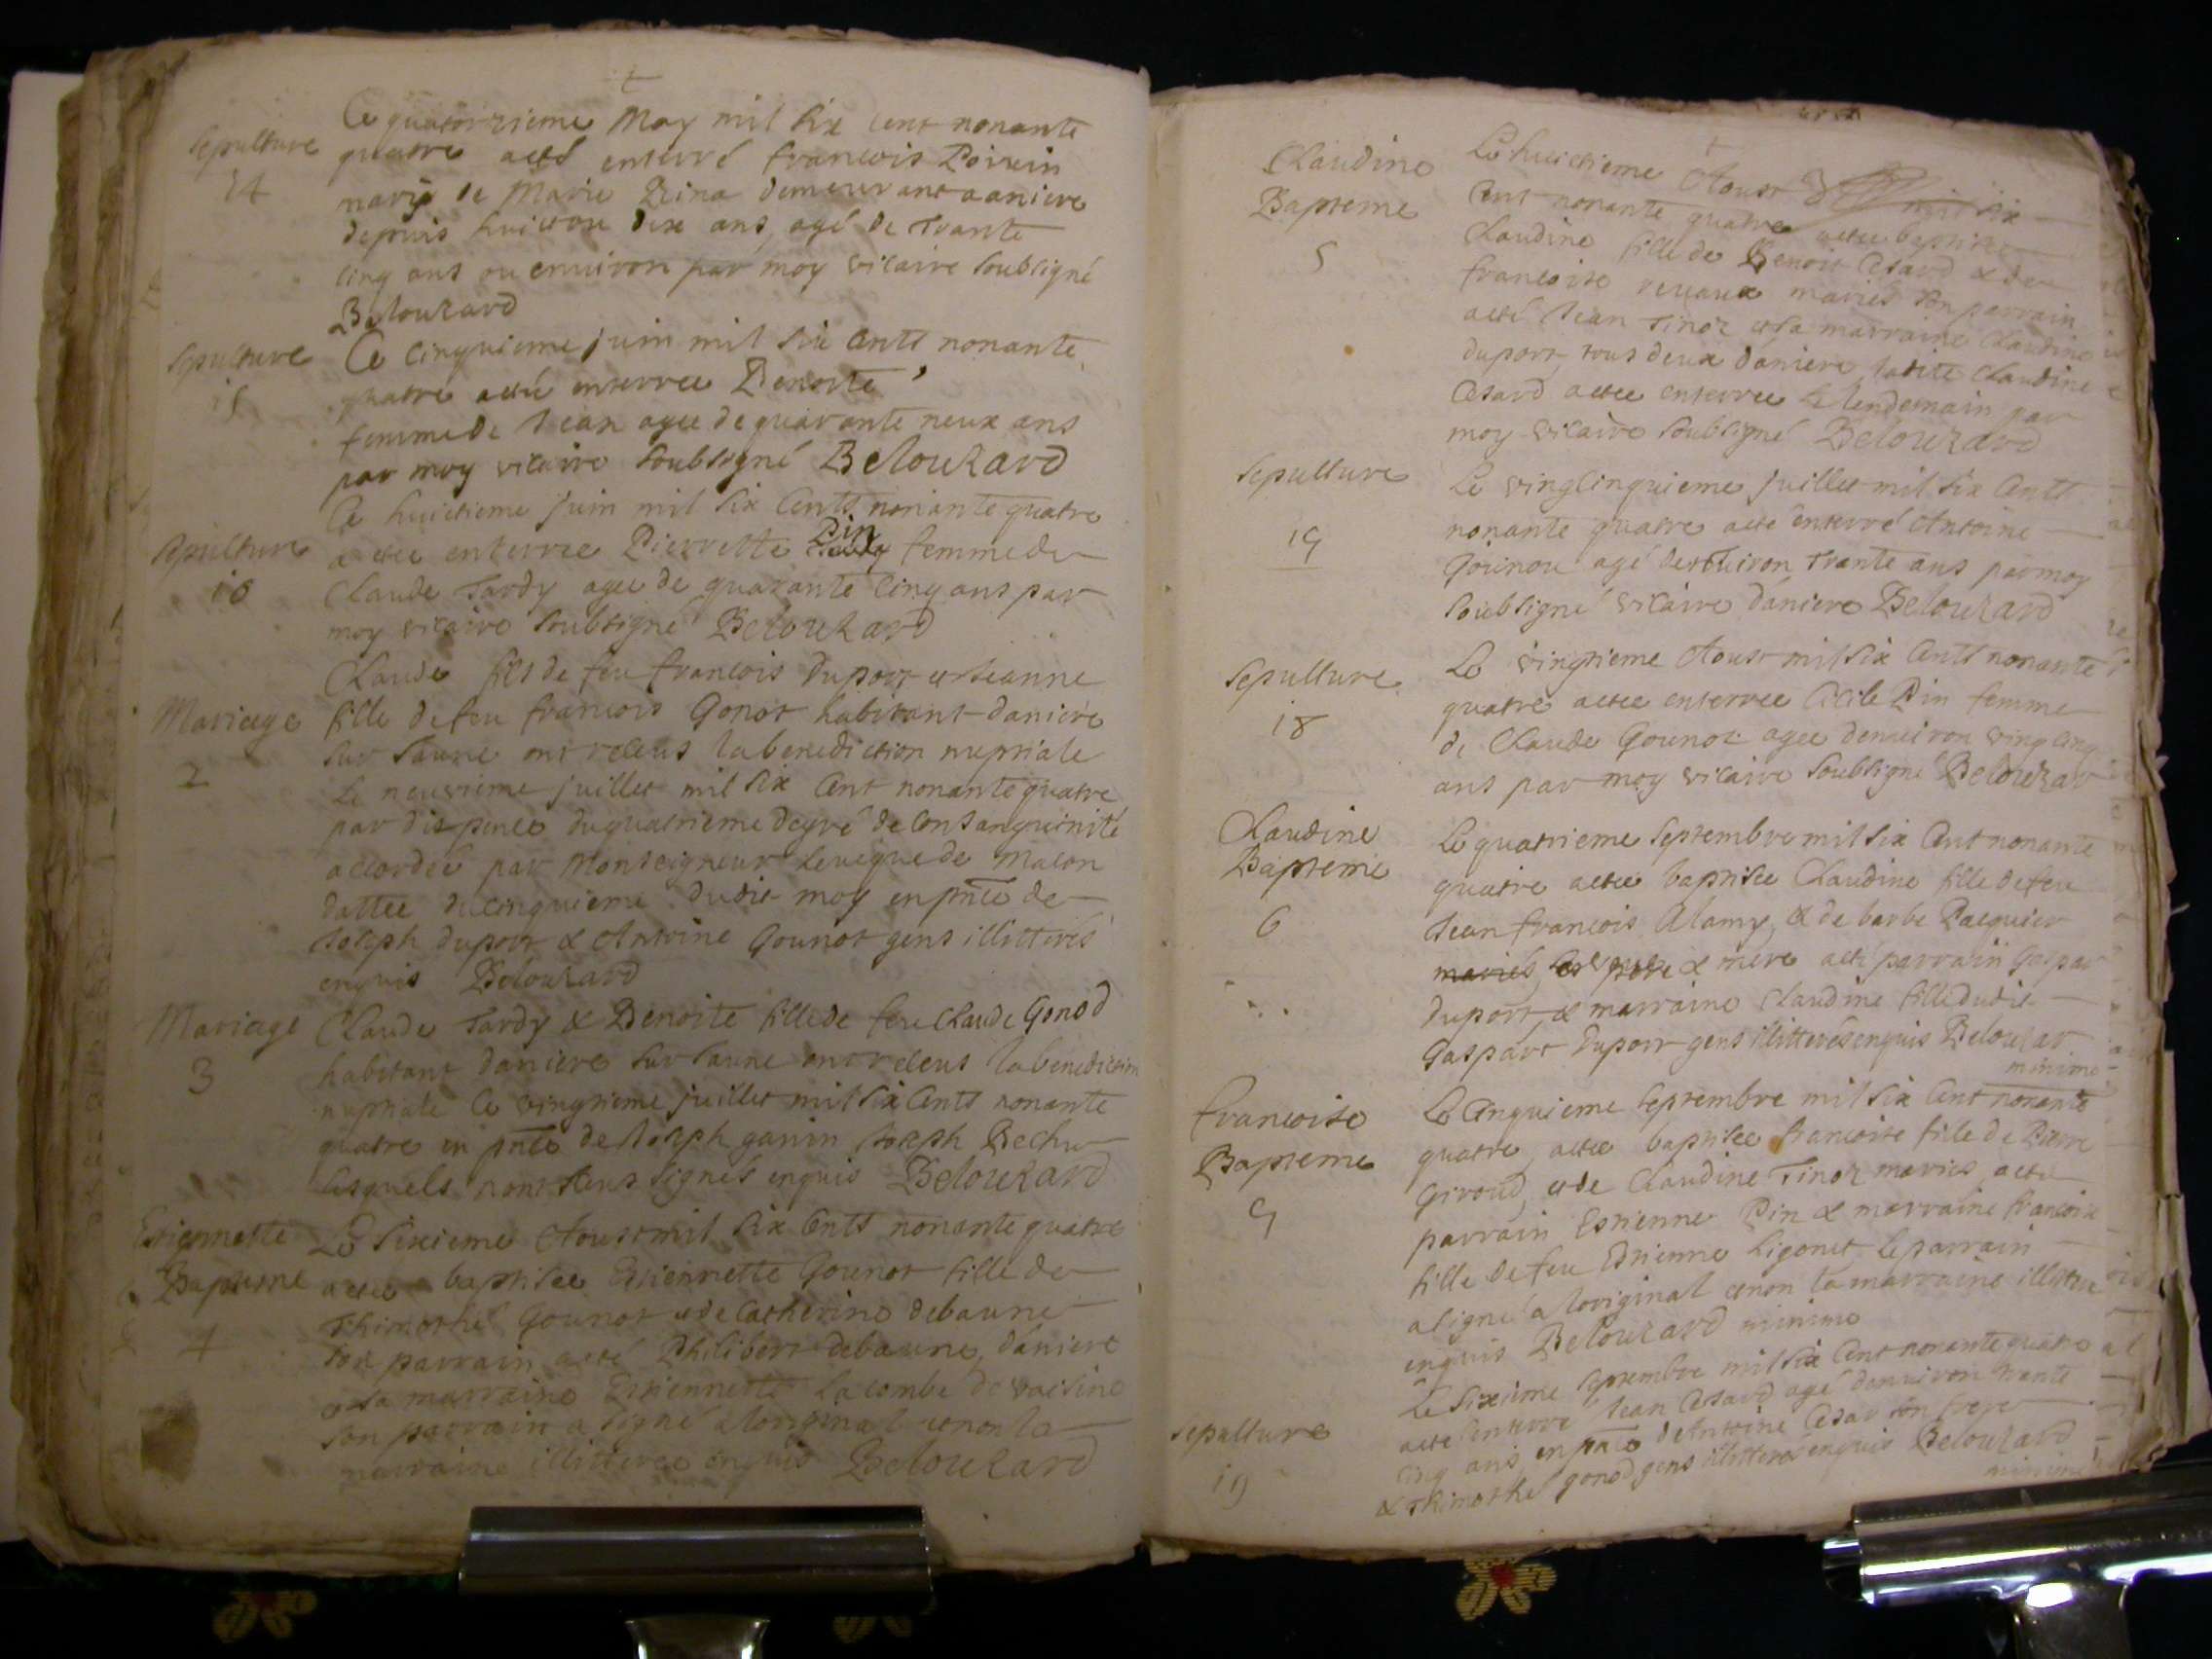 Ce quatorzieme May mil six cent nonante
Sepulture
14
quatre a eté enterré francois Poixin
mary de Marie Pina demeurant a aniere
depuis huict ou dix ans, agé de trante
cinq ans ou environ par moy vicaire soubsigné
Belouzard
Sepulture
15
Ce cinquieme juin mil six cents nonante
quatre a eté enterree Benoite
femme de Jean agee de quarante neux ans
par moy vicaire soubsigné Belouzard
Sepulture
16
Ce huictieme juin mil six cents nonante quatre
a etee enterree Pierrette Pin femme de
Claude Tardy agee de quarante cinq ans par
moy vicaire soubsigné Belouzard
Mariage
2
Claude fils de feu francois Duport et Jeanne
fille de feu francois Gonot habitant daniere
sur saune ont receus la benediction nuptiale
le neuvieme juillet mil six cent nonante quatre
par dispence du quatrieme degré de consanguinité
accordée par Monseigneur Leveque de Macon
dattee du cinquieme dudit moy en pnte de
Joseph duport & Antoine Gounot gens illitterés
enquis Belouzard
Mariage
3
Claude Tardy & Benoite fille de feu Claude Gonod
habitant daniere sur saune ont receus la benediction
nuptiale ce vingtieme juillet mil six cents nonante
quatre en pnte de Joseph ganin Joseph Bechu
lesquels nont sceus signés enquis Belouzard
Estiennette
Bapteme
4
Le sixieme Aoust mil six cents nonante quatre
a etee baptisee Estiennette Gounot fille de
Thimothé Gounot et de Catherine debaune
son parrain a eté Philibert debaune, daniere
et sa marraine Estiennette Lacombe de vaisine
son parrain a signé a loriginal et non la
marraine illitteree enquis Belouzard
Claudine
Bapteme
5
Le huictieme Aoust mil six
cent nonante quatre a etee baptisee
Claudine fille de Benoit Cesard & de
francoise revaux mariés son parrain
a eté Jean Tinoz et sa marraine Claudine
duport tous deux daniere, ladite Claudine
Cesard a etee enterree le lendemain par
moy vicaire soubsigné Belouzard
Sepulture
19
Le vingcinquieme juillet mil six cents
nonante quatre a eté enterré Antoine
Gounou agé denviron trante ans par moy
soubsigné vicaire daniere Belouzard
Sepulture
18
Le vingtieme Aoust mil six cents nonante
quatre a etee enterree Cicile Pin femme
de Claude Gounot agee denviron vingcinq
ans par moy vicaire soubsigné Belouzar
Claudine
Bapteme
6
Le quatrieme Septembre mil six cent nonante
quatre a etee baptisee Claudine fille de feu
Jean francois Alamy, & de barbe Pacquier
mariés ses pere & mere a eté parrain gaspar
duport, & marraine Claudine fille dudit
Gaspart Duport gens illitterés enquis Belouzar
minime
francoise
Bapteme
9
Le cinquieme septembre mil six cent nonante
quatre, a etee baptisee francoise fille de Pierre
Giroud, et de Claudine Tinoz mariés, a eté
parrain Estienne Pin & marraine francoise
fille de feu Estienne Ligonet le parrain
a signé a loriginal et non la marraine illitteree
enquis Belouzard minime
Sepulture
19
Le sixieme septembre mil six cent nonante quatre
a eté enterré Jean Cesard agé denviron trante
cinq ans en pnte dAntoine Cesar son frere
& Thimothé gonod gens illitterés enquis Belouzard
minime